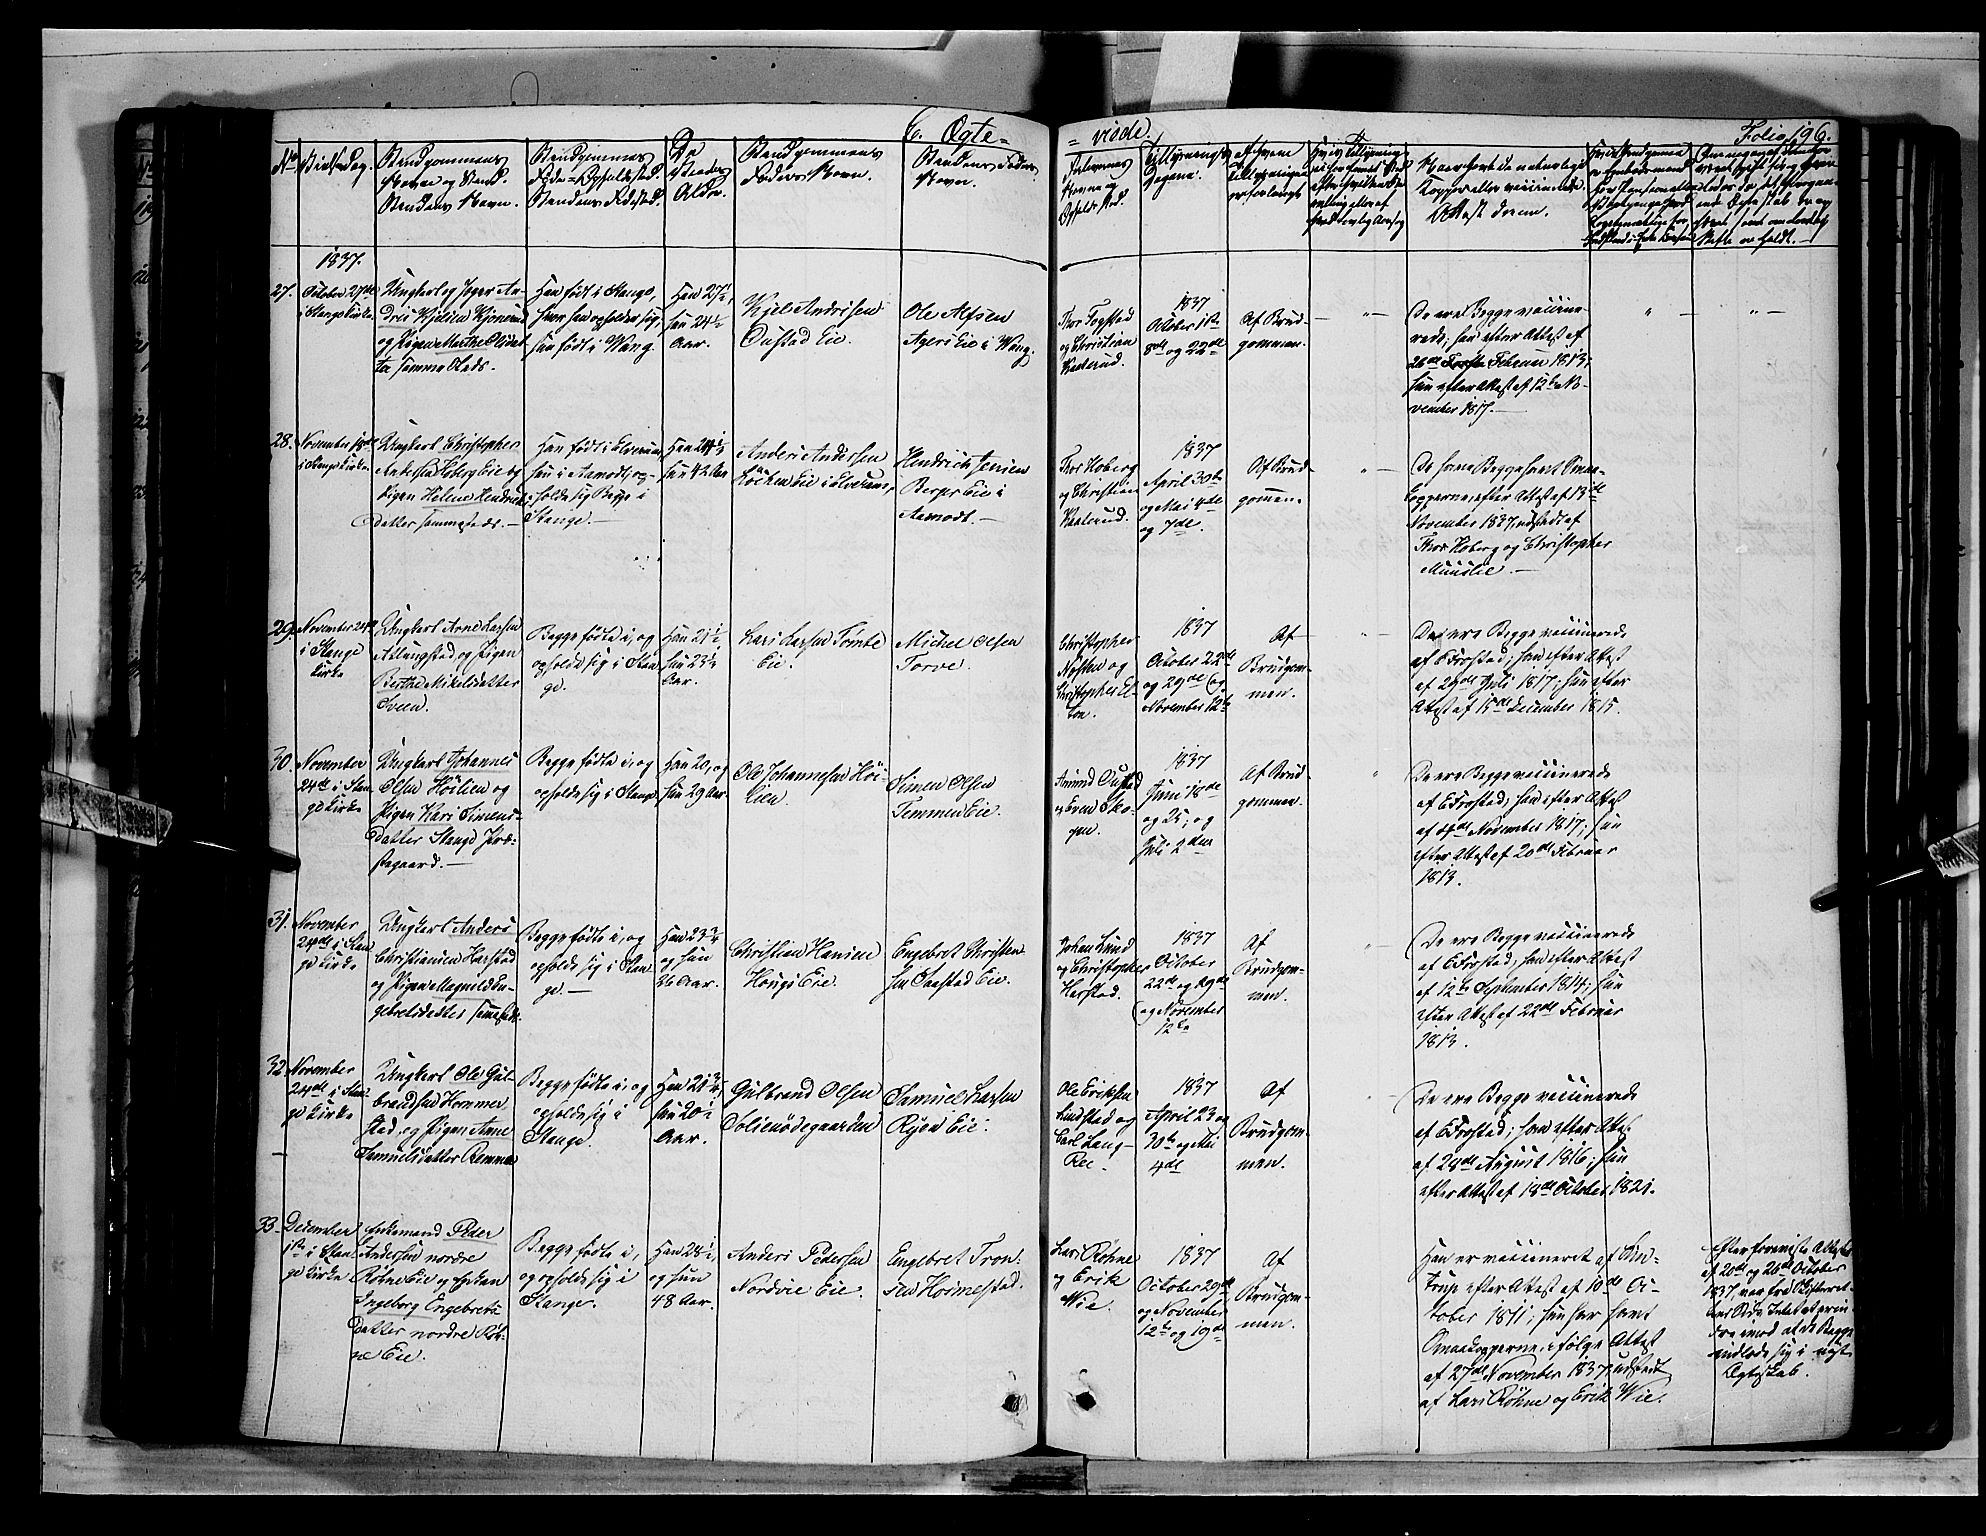 6. Ægte=
= viede.
Folio 196.
No
Vielses Dag.
Brudgommens
Navn og Stand.
Brudens Navn.
Brudgommens
Føde= Opholdssted.
Brudens Fødested.
De
Viedes
Alder.
Brudgommens
Faders Navn.
Brudens Faders
Navn.
Forlovernes
Navne og
Opholdssted.
Tillysnings
Dagene.
Af hvem
Tillysningen
er forlangt.
Naar havt de naturlige
Kopper eller vaccinerede.
Attest derom.
1837.
27.
October 27de
i Stange Kirke
Ungkarl og Jæger An-
dreas Kjelsen Kjonerud
og Pigen Marthe Olsdat-
ter samme Steds.
Han født i Stange,
hvor han opholder sig,
hun født i Wang.
Han 27½,
hun 24½
Aar.
Kjel Andersen
Oustad Eie.
Ole Alfsen
Ageri Eie i Wang.
Thor Fogstad
og Christian
Kaaterud.
1837
October 1ste
8de og 22de
Af Brud-
gommen.
De ere Begge vaccine-
rede; han efter Attest af
26de Februar 1813;
hun efter Attest af 12te No-
vember 1817.
28.
November 18de
i Stange Kirke.
Ungkarl Christopher
Andersen Hoberg Eie og
Pigen Helene Hendriks-
Datter sammesteds.
Han født i Elverum,
hun i Aamodt, op-
holde sig Begge i
Stange.
Han 24½
hun 42 Aar
Anders Andersen
Löken Eie i Elverum,
Hendrich Jensen
Bergs Eie i
Aamodt.
Thor Hoberg
og Christian
Kaaterud.
1837
April 30te
og Mai 4de
og 7de.
Af Brud-
gommen.
De have Begge havt Smaa-
kopperne, efter Attest af 13de
November 1837, udstedt af
Thor Hoberg og Christopher
Muuslie.
29.
November 24de
i Stange
Kirke
Ungkarl Arne Larsen
Atlungstad og Pigen
Berthe Mikelsdatter
Sveen.
Begge fødte i, og
opholde sig i Stan-
ge.
Han 21½
hun 23½
Aar.
Lars Larsen Tömte
Eie.
Michel Olsen
Torve.
Christopher
Nøsten og
Christopher El-
ton.
1837
October 22de
og 29de og
November 12te
Af
Brudgom-
men.
De ere Begge vaccinerede
af C Frostad; han efter Attest
af 29de Juli 1817; hun efter
Attest af 15de December 1815.
30.
November
24de i Stan-
ge Kirke
Ungkarl Johannes
Olsen Höilien og
Pigen Kari Simens-
datter Stange Præ-
stegaard.
Begge fødte i, og
opholde sig i Stange
Han 20, og
hun 29 Aar.
Ole Johannesen Höi-
lien.
Simen Olsen
Temmen Eie.
Amund Oustad
og Even Sko-
gen.
1837
Juni 18de
og 25; og
Juli 2den
Af Brud-
gommen.
De ere Begge vaccinerede
af C Frostad; han efter Attest
af 4de November 1817; hun
efter Attest af 20de Februar
1813.
31.
November
24de i Stan-
ge Kirke
Ungkarl Anders
Christiansen Harstad
og Pigen Magnild En-
gebretsdatter sammesteds.
Begge fødte i, og
opholde sig i Stan-
ge.
Han 23¾
og hun
26 Aar.
Christian Hansen
Hougs Eie.
Engebret Christen-
sen Saastad Eie.
Johan Lund
og Christopher
Harstad.
1837
October
22de og 29de
og November
12te
Af
Brudgom-
men.
De ere Begge vaccinerede
af C Frostad; han efter Attest
af 12te September 1814; hun
efter Attest af 22de Februar
1813.
32.
November
24de i Stan-
ge Kirke
Ungkarl Ole Gul-
brandsen Hommer-
stad og Pigen Arne
Samuelsdatter Rommen
Begge fødte i, og
opholde sig i
Stange.
Han 21¾
hun 20½
Aar.
Gulbrand Olsen
Solienödegaarden
Samuel Larsen
Ryen Eie.
Ole Eriksen
Lindstad og
Carl Lang-
Ree.
1837
April 23 og
30te og Mai
4de
Af
Brudgom-
men.
De ere Begge vaccinerede
af C Frostad; han efter Attest
af 28de August 1816; hun
efter Attest af 18de October 1821.
33.
December
1ste i Stan-
ge Kirke
Enkemand Peder
Andersen nordre
Röhne Eie og Enken
Ingeborg Engebrets-
datter nordre Röh-
ne Eie.
Begge fødte i,
og opholde sig i
Stange.
Han 28½,
og hun
48 Aar.
Anders Pedersen
Nordvie Eie.
Engebret Tron-
sen Hommelstad.
Lars Röhne
og Erik
Wie.
1837
October 29de
og November
12te og 19de
Af
Brudgom-
men.
Han er vaccineret af Sin-
trup efter Attest af 10de Oc-
tober 1811; hun har havt
Smaakopperne, ifölge Attest
af 27de November 1837, udstedt
af Lars Röhne og Erik Wie.
Efter foreviste Attester
af 20de og 26de October
1837 var fra Skifteret-
tens Side Intet at erin-
dre imod at de Begge
indlode sig i nyt
Ægteskab.